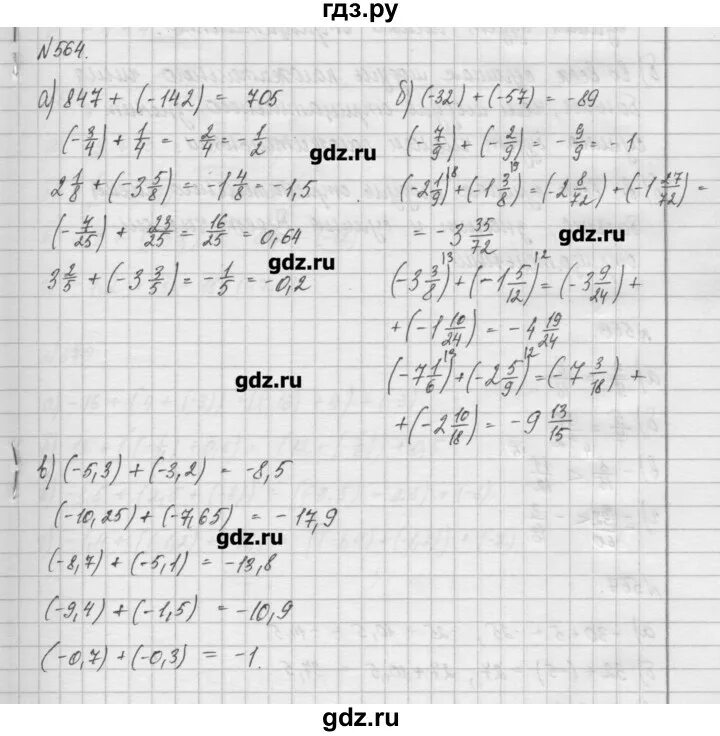 гдз.ру
N564.
а) 847 + (-142) = 705
(-3/4) + 1/4 = -2/4 = -1/2
gdz.ru
2 1/8 + (-3 5/8) = -1 4/8 = -1,5
(-4/25) + 23/25 = 16/25 = 0,64
3 2/5 + (-3 3/5) = -1/5 = -0,2
gdz.ru
gdz.ru
б) (-32) + (-57) = -89
(-7/9) + (-2/9) = -9/9 = -1
(-2 1/9)^18 + (-1 3/8)^19 = (-2 8/72) + (-1 27/72) =
= -3 35/72
gdz.ru
(-3 3/8)^13 + (-1 5/12)^12 = (-3 9/24) +
+ (-1 10/24) = -4 19/24
(-7 1/6)^13 + (-2 5/9)^12 = (-7 3/18) +
+ (-2 10/18) = -9 13/15
в) (-5,3) + (-3,2) = -8,5
(-10,25) + (-7,65) = -17,9
gdz.ru
(-8,7) + (-5,1) = -13,8
(-9,4) + (-1,5) = -10,9
(-0,7) + (-0,3) = -1.
gdz.ru